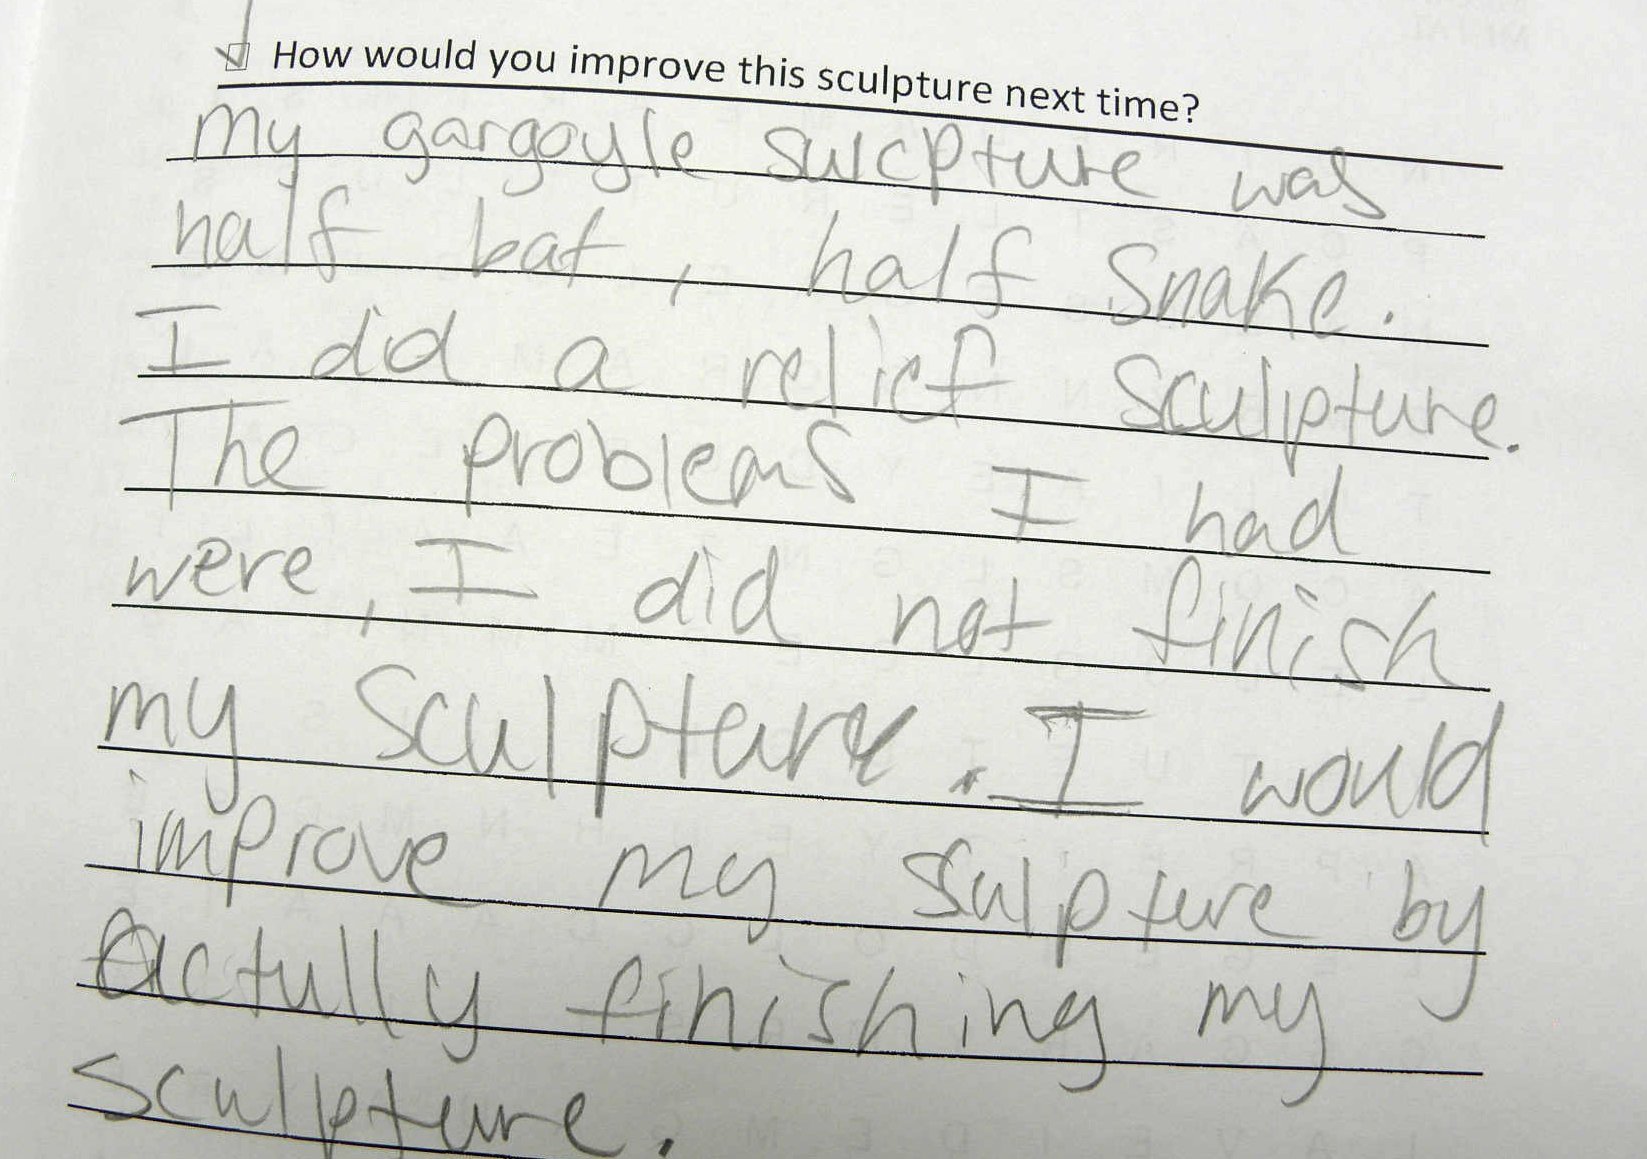 How would you improve this sculpture next time?
My gargoyle sulcpture was
half bat, half snake.
I did a relief sculpture.
The problems I had
were, I did not finish
my sculpture. I would
improve my sculpture by
actully finishing my
sculpture.